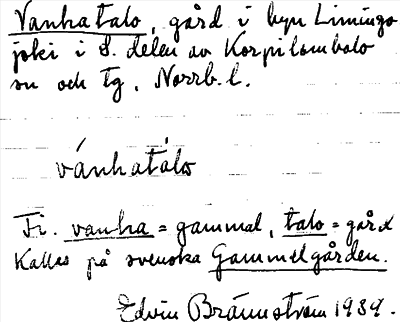 Vanhatalo, gård i byn Limingo
joki i S. delen av Korpilombolo
sn och tg, Norrb. l.
vánhatálo
Fi. vanha = gammal, talo = gård
Kallas på svenska Gammelgården.
Edvin Brännström 1934.